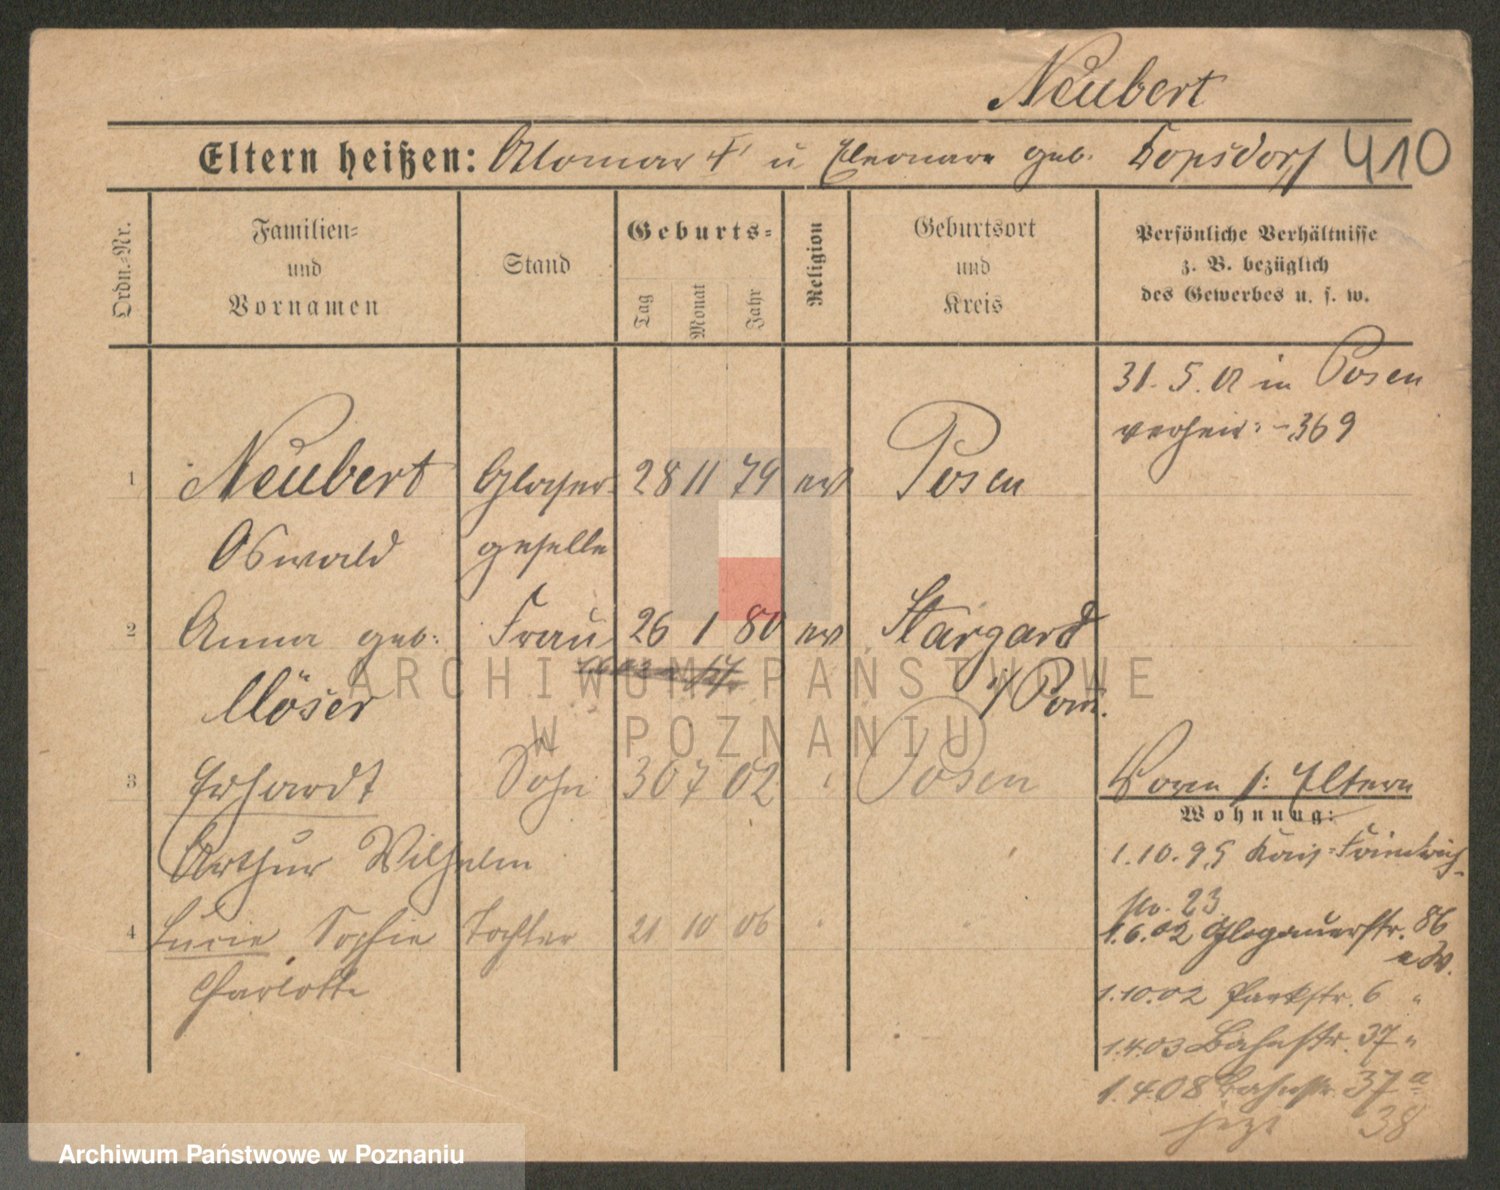 Neubert
Eltern heißen: Ottomar † u Eleonore geb. Topsdorf 410
Ordn.-Nr.
Familien-
und
Vornamen
Stand
Geburts-
Tag
Monat
Jahr
Religion
Geburtsort
und
Kreis
Persönliche Verhältnisse
z. B. bezüglich
des Gewerbes u. s. w.
31. 5. 02 in Posen
verheir: -369
1 Neubert Glaser- 28 11 79 ev Posen
Oswald geselle
2 Anna geb: Frau 26 1 80 ev Stargard
Möser i/Pom.
3 Erhardt Sohn 30 7 02 " Posen
Arthur Wilhelm
Vorm s: Eltern
Wohnung:
1.10.95 Kais-Friedrich-
No. 23
4 Lucie Sophie Tochter 21 10 06 " "
Charlotte
1.6.02 Glogauerstr. 86
1.10.02 Parkstr. 6 "
1.4.03 Bahnstr. 37 "
1.4.08 Bahnstr. 37 a
jezt 38
ARCHIWUM PAŃSTWOWE
W POZNANIU
Archiwum Państwowe w Poznaniu